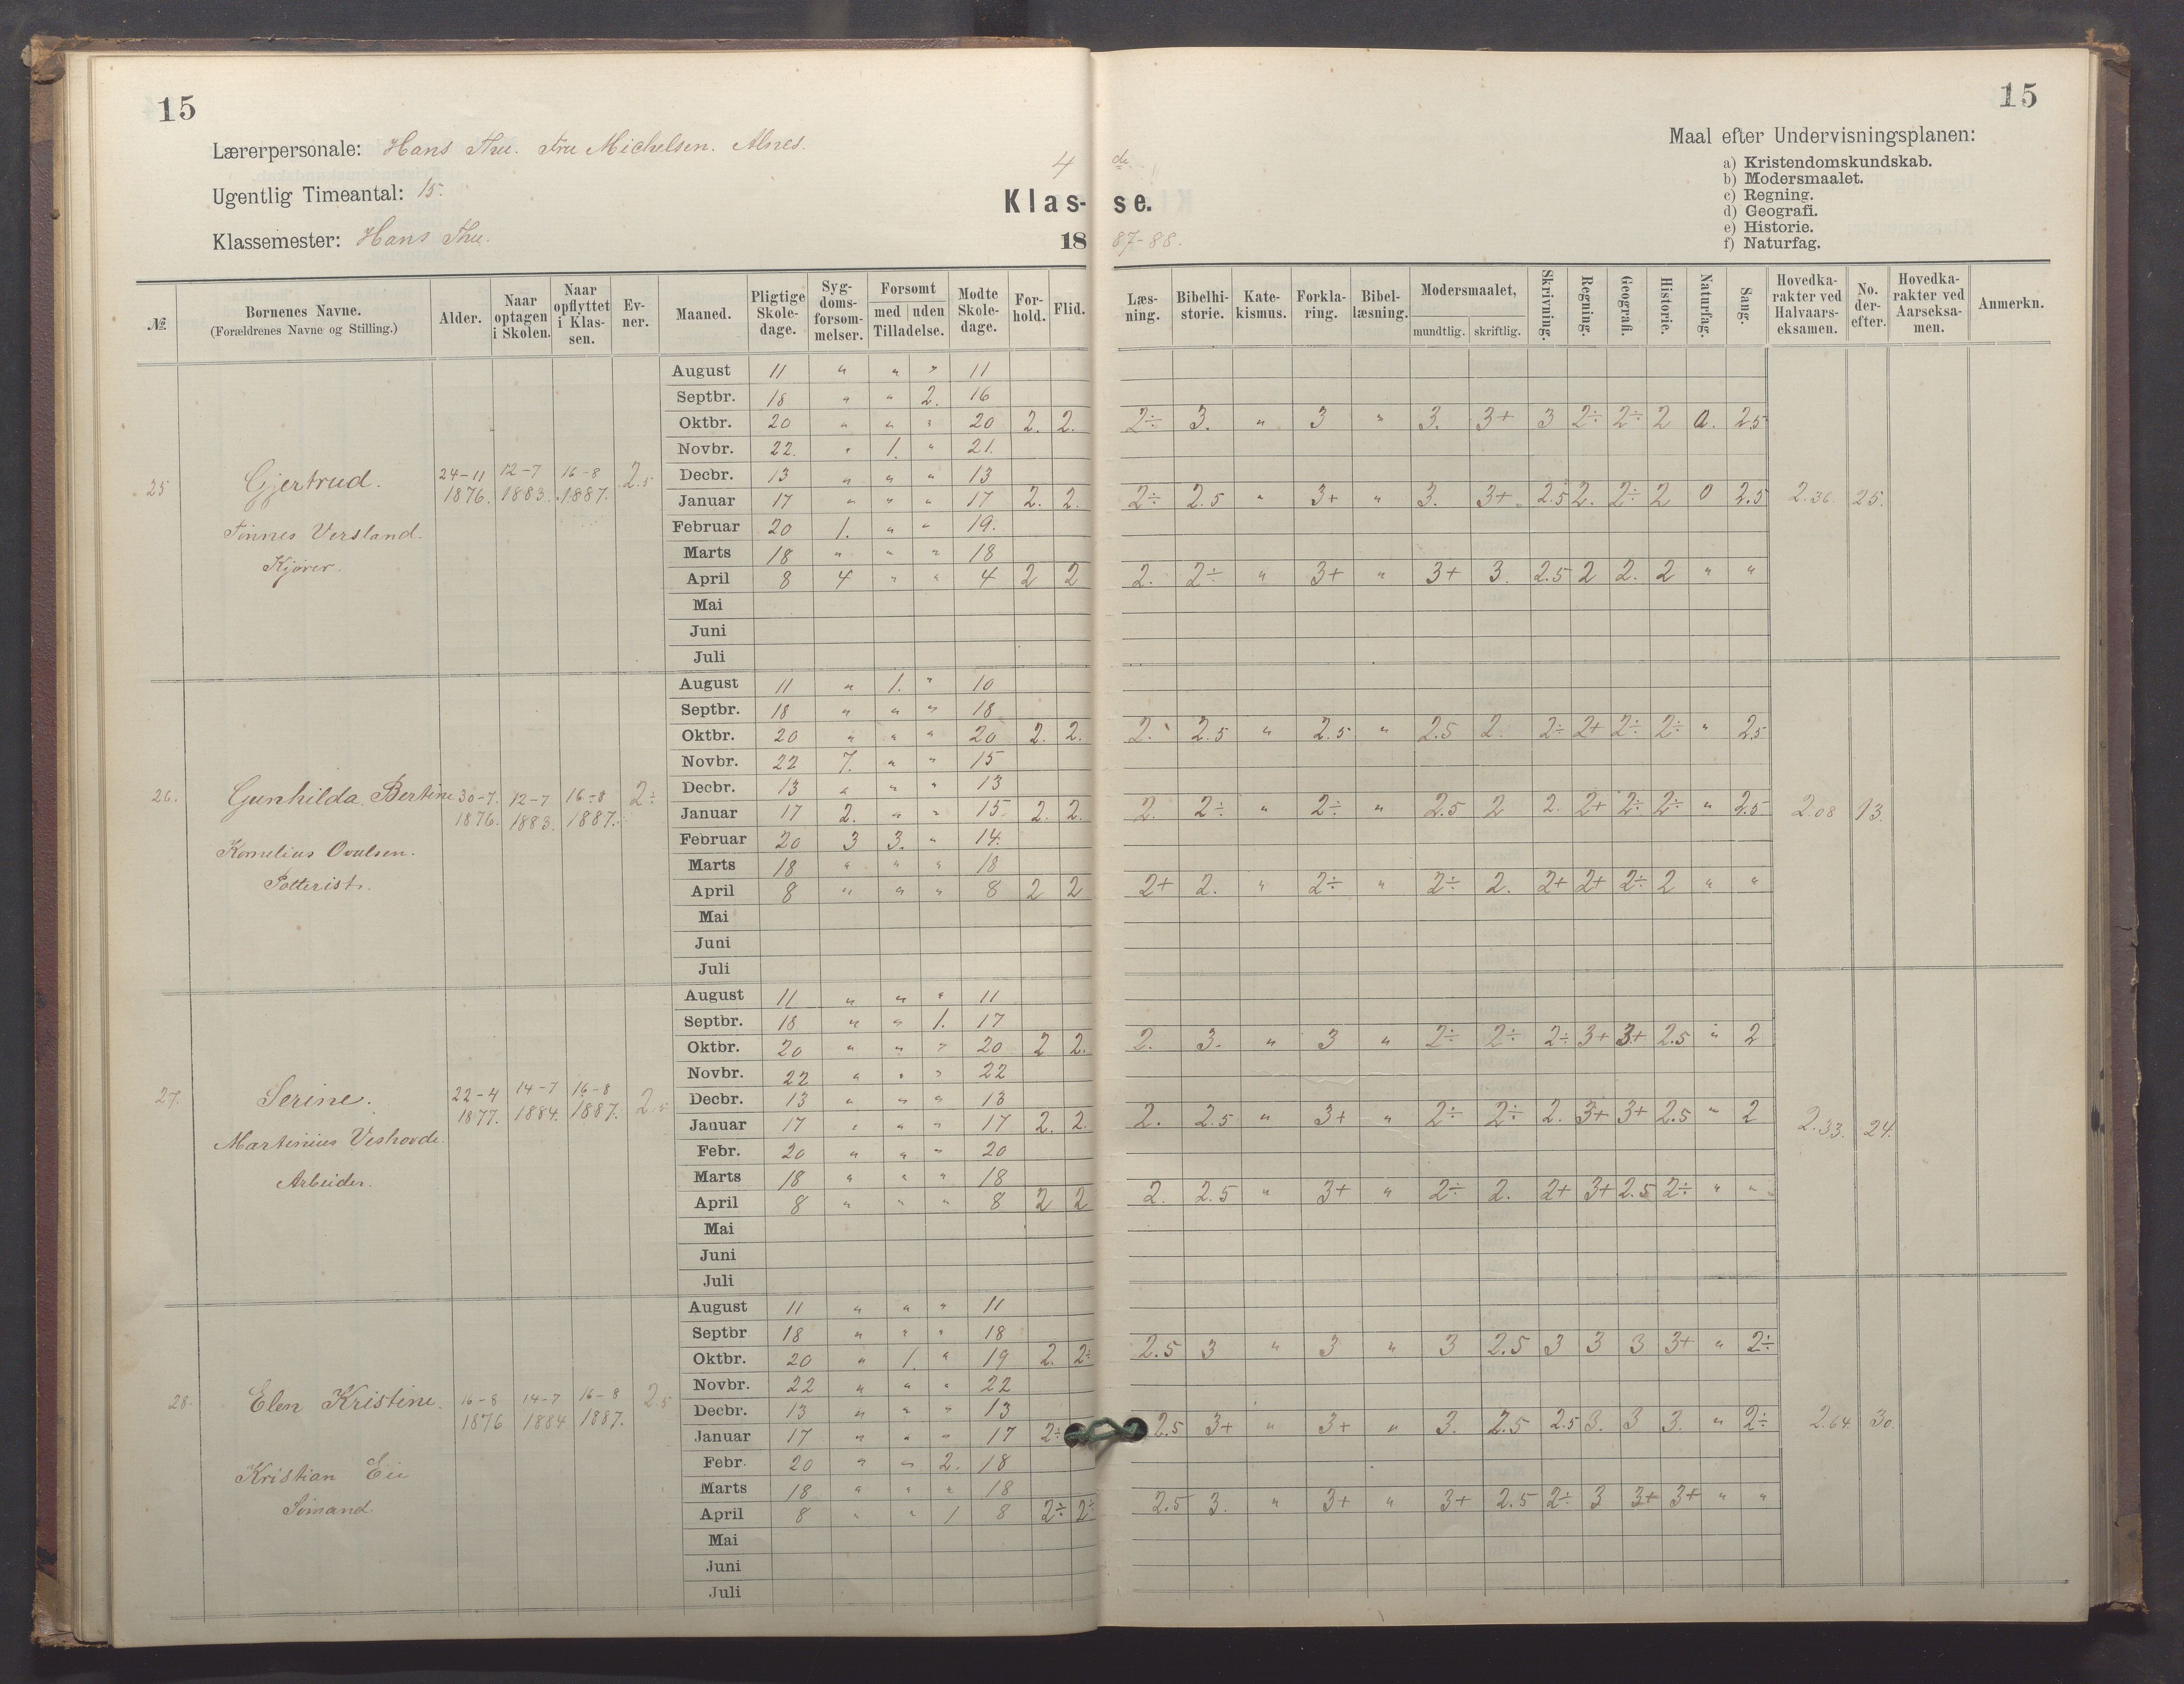 15
15
Lærerpersonale: Hans Thu. Fru Michelsen. Alnes.
Ugentlig Timeantal: 15.
Klassemester: Hans Thu.
4 de
Klas- se.
18 87-88.
Maal efter Undervisningsplanen:
a) Kristendomskundskab.
b) Modersmaalet.
c) Regning.
d) Geografi.
e) Historie.
f) Naturfag.
№ Børnenes Navne. (Forældrenes Navne og Stilling.) Alder. Naar optagen i Skolen. Naar opflyttet i Klassen. Evner. Maaned. Pligtige Skoledage. Sygdomsforsømmelser. Forsømt med uden Tilladelse. Mødte Skoledage. Forhold. Flid. Læsning. Bibelhistorie. Katekismus. Forklaring. Bibellæsning. Modersmaalet, mundtlig. skriftlig. Skrivning. Regning. Geografi. Historie. Naturfag. Sang. Hovedkarakter ved Halvaarseksamen. No. derefter. Hovedkarakter ved Aarseksamen. Anmerkn.
25 Gjertrud. 24-11 1876. 12-7 1883. 16-8 1887. 2.5
Tønnes Versland.
Kjører.
August 11 " " " 11
Septbr. 18 " " 2. 16
Oktbr. 20 " " " 20 2. 2. 2÷ 3. " 3 " 3. 3+ 3 2÷ 2÷ 2 0. 2.5
Novbr. 22. " 1. " 21.
Decbr. 13 " " " 13
Januar 17 " " " 17 2. 2. 2÷ 2.5 " 3+ " 3. 3+ 2.5 2. 2÷ 2 0 2.5 2.36. 25.
Februar 20 1. " " 19.
Marts 18 " " " 18
April 8 4 " " 4 2 2 2. 2÷ " 3+ " 3+ 3. 2.5 2 2. 2 " "
Mai
Juni
Juli
26. Gunhilda Bertine 30-7. 1876. 12-7 1883. 16-8 1887. 2÷
Kornelius Ovalsen.
Potterist.
August 11 " 1. " 10
Septbr. 18 " " " 18
Oktbr. 20 " " " 20 2. 2. 2. 2.5 " 2.5 " 2.5 2. 2÷ 2+ 2÷ 2÷ " 2.5
Novbr. 22 7. " " 15
Decbr. 13 " " " 13
Januar 17 2. " " 15 2. 2. 2. 2÷ " 2÷ " 2.5 2 2. 2+ 2÷ 2÷ " 2.5 2.08 13.
Februar 20 3 3. " 14.
Marts 18 " " " 18
April 8 " " " 8 2 2 2+ 2. " 2÷ " 2÷ 2. 2+ 2+ 2÷ 2 " "
Mai
Juni
Juli
27. Serine. 22-4 1877. 14-7 1884. 16-8 1887. 2.5
Martinius Veshovde.
Arbeider.
August 11 " " " 11
Septbr. 18 " " 1. 17
Oktbr. 20 " " " 20 2 2. 2. 3. " 3 " 2÷ 2÷ 2÷ 3+ 3+ 2.5 " 2
Novbr. 22 " " " 22
Decbr. 13 " " " 13
Januar 17 " " " 17 2. 2. 2. 2.5 " 3+ " 2÷ 2÷ 2. 3+ 3+ 2.5 " 2 2.33. 24.
Febr. 20 " " " 20
Marts 18 " " " 18
April 8 " " " 8 2 2 2. 2.5 " 3+ " 2÷ 2. 2+ 3+ 2.5 2÷ " "
Mai
Juni
Juli
28. Elen Kristine. 16-8 1876 14-7 1884 16-8 1887. 2.5
Kristian Eie
Sømand.
August 11 " " " 11
Septbr 18 " " " 18
Oktbr. 20 " 1. " 19 2. 2÷ 2.5 3 " 3 " 3 2.5 3 3 3 3+ " 2÷
Novbr. 22 " " " 22
Decbr. 13 " " " 13
Januar 17 " " " 17 2÷ 2.5 3+ " 3+ " 3. 2.5 2.5 3. 3 3. " 2÷ 2.64 30.
Febr. 20 " " 2. 18
Marts 18 " " " 18
April 8 " " 1 8 2÷ 2÷ 2.5 3. " 3+ " 3+ 2.5 2÷ 3 3+ 3+ " "
Mai
Juni
Juli